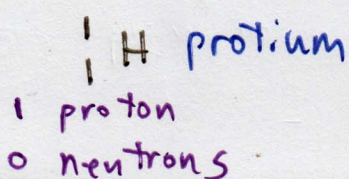 ¹₁H protium
1 proton
0 neutrons